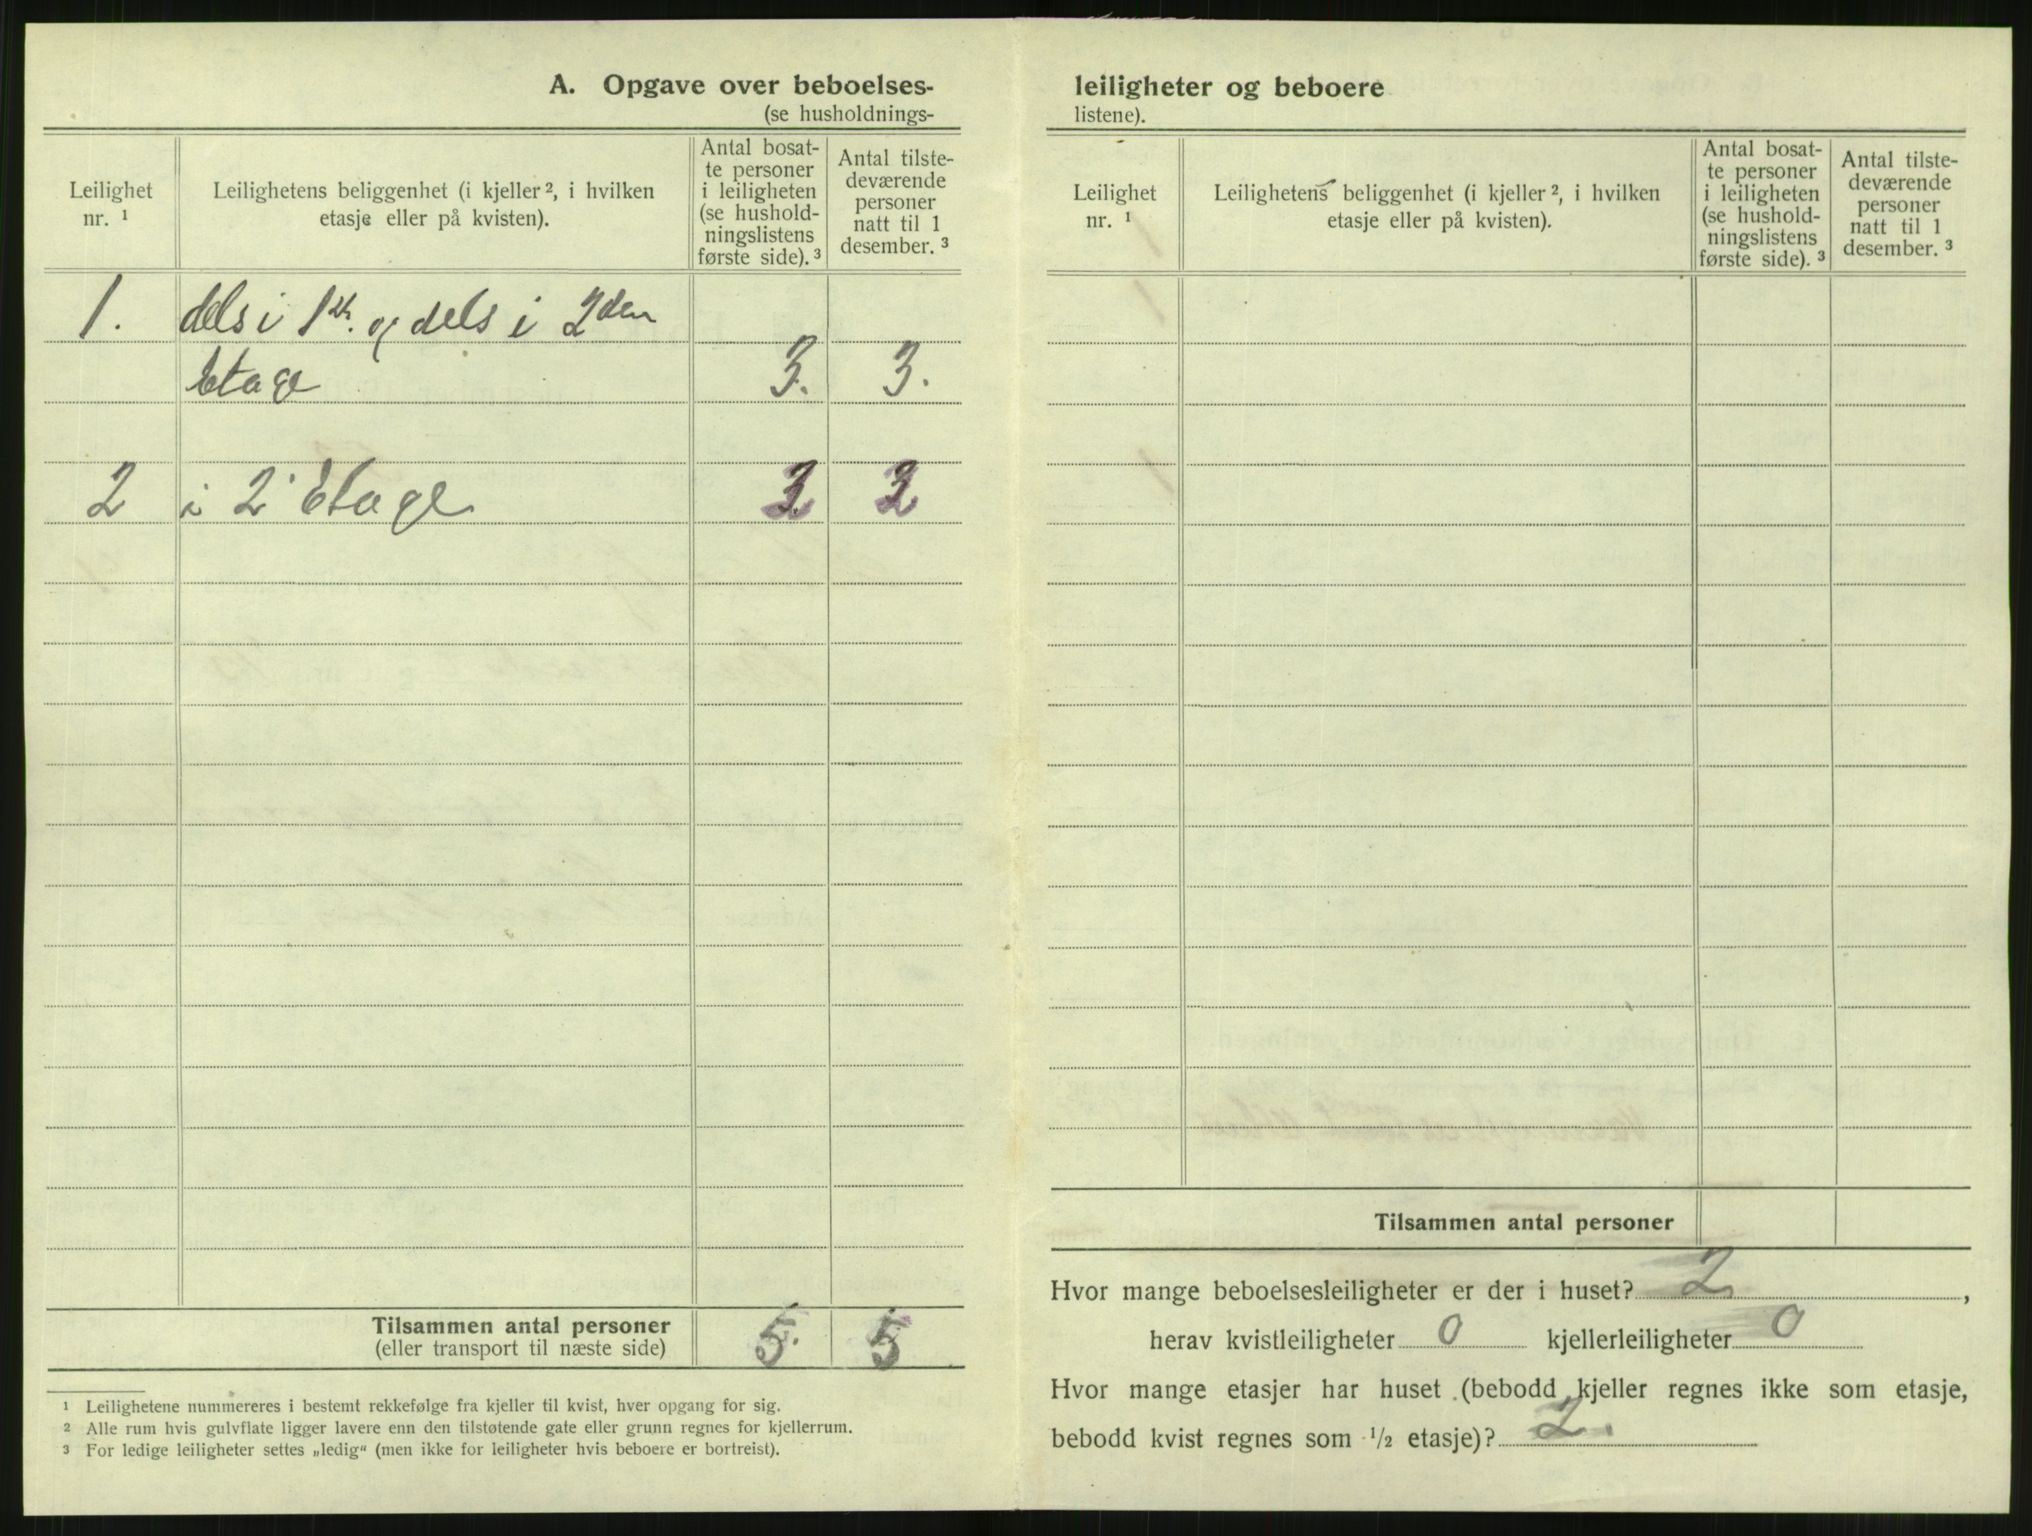 A. Opgave over beboelses-
(se husholdnings-
Leilighet nr. 1
Leilighetens beliggenhet (i kjeller ², i hvilken etasje eller på kvisten).
Antal bosat-
te personer
i leiligheten
(se hushold-
ningslistens
første side). ³
Antal tilste-
deværende
personer
natt til 1
desember. ³
1. dels i 1ste. og dels i 2den
Etage 3. 3.
2 i 2' Etage 2 2
Tilsammen antal personer 5. 5
(eller transport til næste side)
¹ Leilighetene nummereres i bestemt rekkefølge fra kjeller til kvist, hver opgang for sig.
² Alle rum hvis gulvflate ligger lavere enn den tilstøtende gate eller grunn regnes for kjellerrum.
³ For ledige leiligheter settes „ledig“ (men ikke for leiligheter hvis beboere er bortreist).
leiligheter og beboere
listene).
Leilighet nr. ¹
Leilighetens beliggenhet (i kjeller ², i hvilken etasje eller på kvisten).
Antal bosat-
te personer
i leiligheten
(se hushold-
ningslistens
første side). ³
Antal tilste-
deværende
personer
natt til 1
desember. ³
Tilsammen antal personer
Hvor mange beboelsesleiligheter er der i huset? 2,
herav kvistleiligheter 0 kjellerleiligheter 0
Hvor mange etasjer har huset (bebodd kjeller regnes ikke som etasje,
bebodd kvist regnes som ½ etasje)? 2.